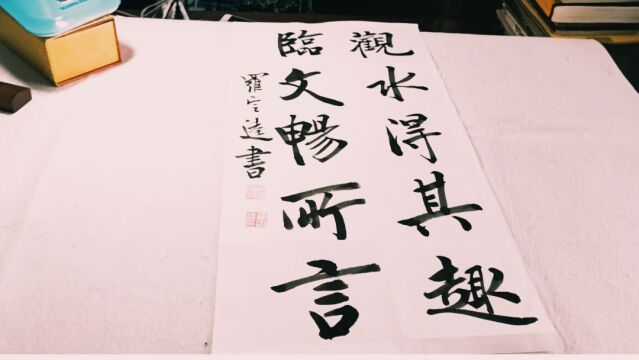 觀水得其趣
臨文暢所言
羅宣達書